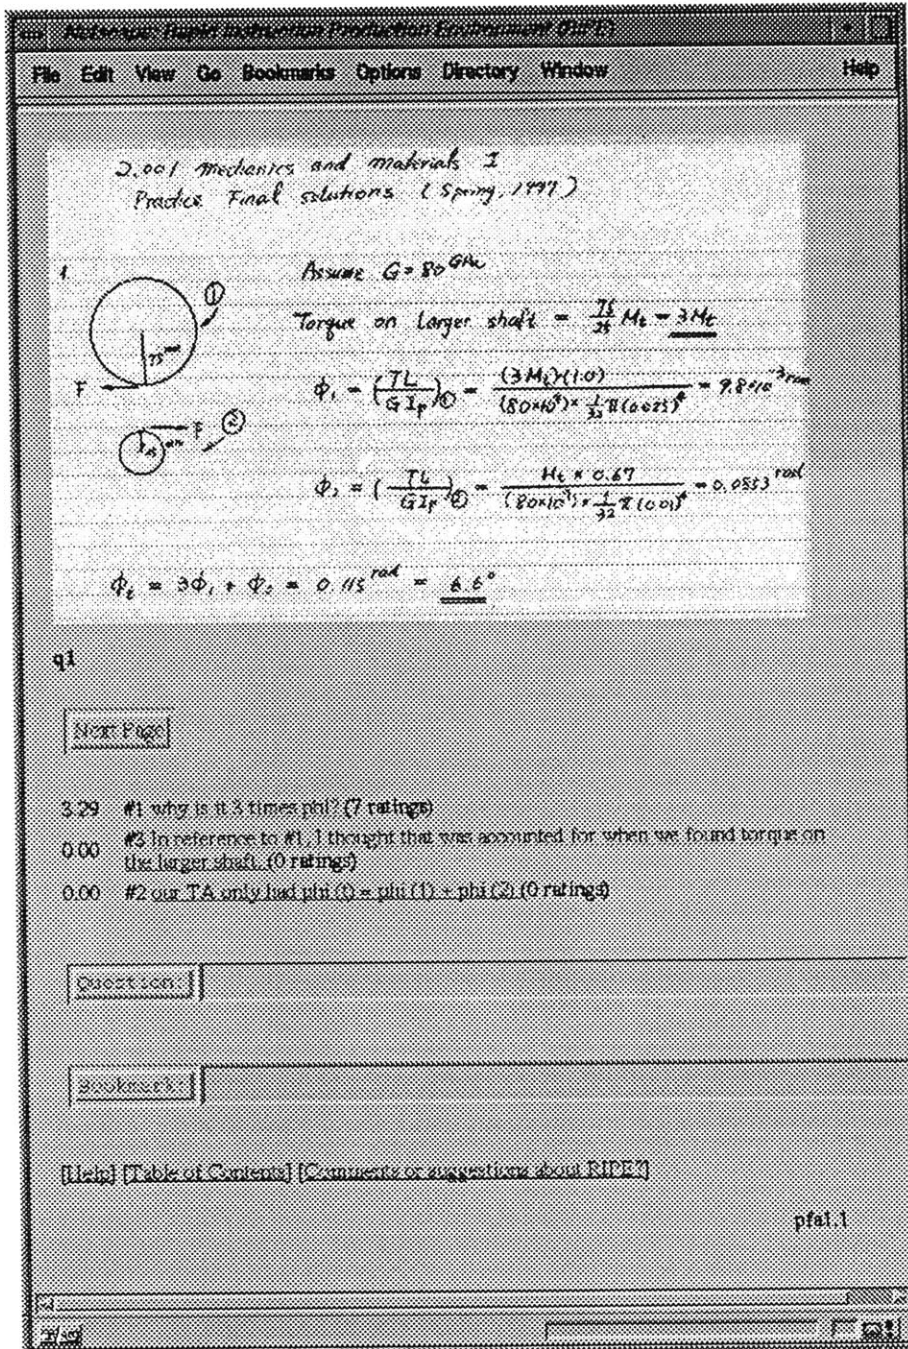 Netscape: Rapid Instruction Production Environment (RIPE)
File Edit View Go Bookmarks Options Directory Window Help
2.001 mechanics and materials I
Practice Final solutions (Spring, 1997)
1.
Assume G = 80 GPa
①
Torque on larger shaft = 75/25 Mt = 3Mt
75 mm
F
ϕ₁ = (TL/GIp)① = (3Mt)(1.0) / (80×10⁹) × 1/32 π(0.025)⁴ = 9.8×10⁻³ rad
F ②
25 mm
ϕ₂ = (TL/GIp)② = Mt × 0.67 / (80×10⁹) × 1/32 π(0.01)⁴ = 0.0853 rad
ϕt = 3ϕ₁ + ϕ₂ = 0.115 rad = 6.6°
q1
Next Page
3.29 #1 why is it 3 times phi? (7 ratings)
0.00 #3 In reference to #1, I thought that was accounted for when we found torque on
the larger shaft. (0 ratings)
0.00 #2 our TA only had phi (t) = phi (1) + phi (2) (0 ratings)
Question:
Bookmark:
[Help] [Table of Contents] [Comments or suggestions about RIPE?]
pfa1.1